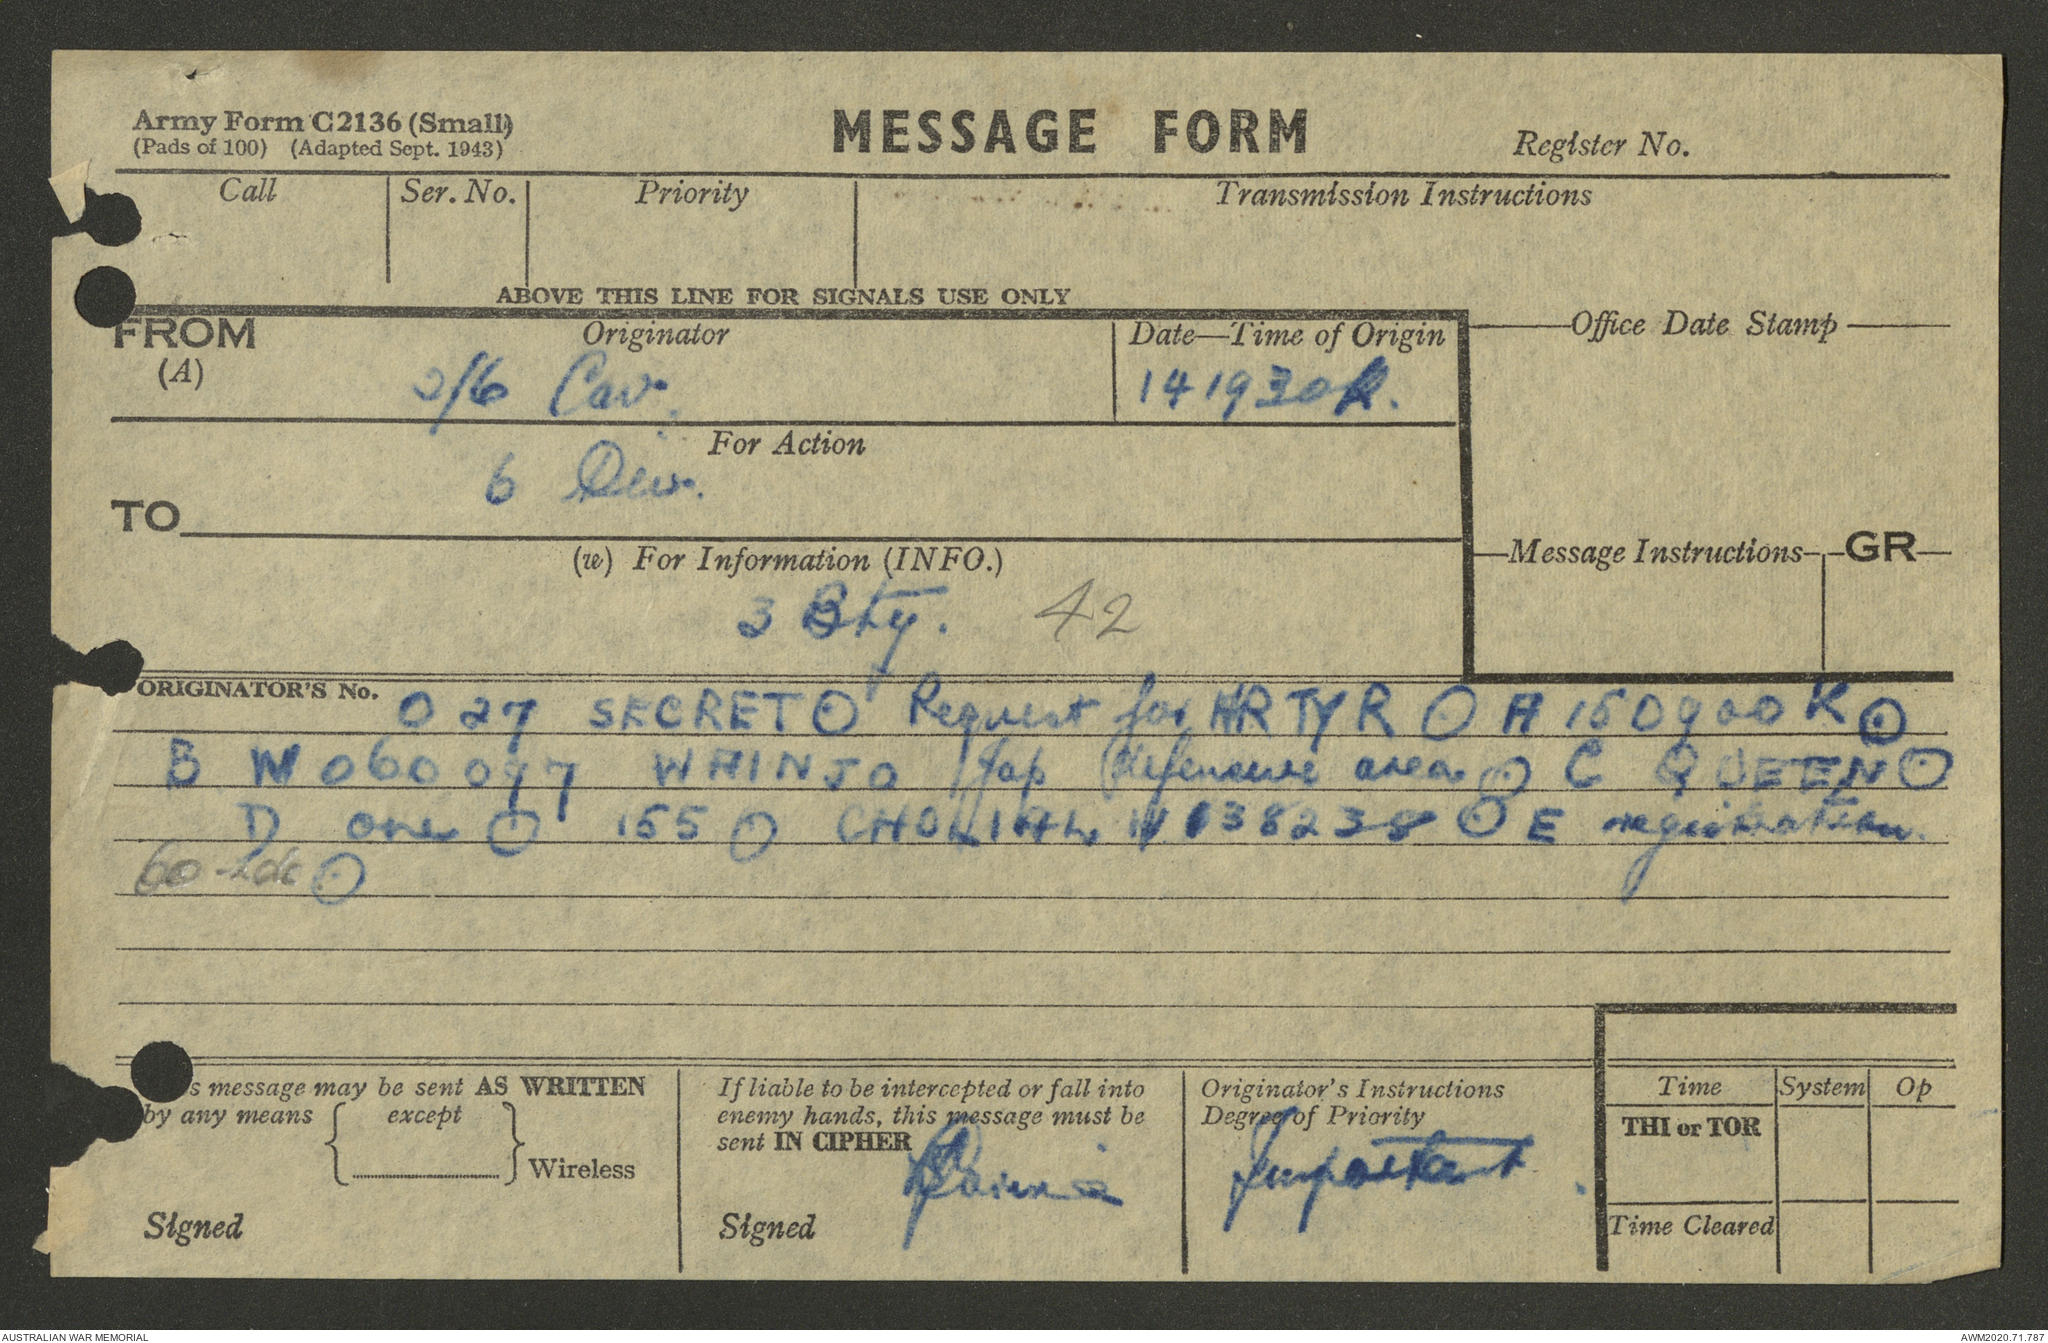 Army Form C2136 (Small)
(Pads of 100) (Adapted Sept. 1943)
MESSAGE FORM
Register No.
Call
Ser. No.
Priority
Transmission Instructions
ABOVE THIS LINE FOR SIGNALS USE ONLY
FROM
(A)
Originator
2/6 Cav.
Date—Time of Origin
141930K.
Office Date Stamp
For Action
6 Div.
TO
(w) For Information (INFO.)
3 Bty. 42
Message Instructions
GR
ORIGINATOR'S No.
O 27 SECRET ⊙ Request for ARTY R ⊙ A 150900K ⊙
B W 060097 WHINJO Jap defensive area ⊙ C QUEEN ⊙
D one ⊙ 155 ⊙ 138238 ⊙ E registration.
60 rds ⊙
s message may be sent AS WRITTEN
by any means except
Wireless
Signed
If liable to be intercepted or fall into
enemy hands, this message must be
sent IN CIPHER
Signed
Originator's Instructions
Degree of Priority
Important.
Time
System
Op
THI or TOR
Time Cleared
AUSTRALIAN WAR MEMORIAL
AWM2020.71.787